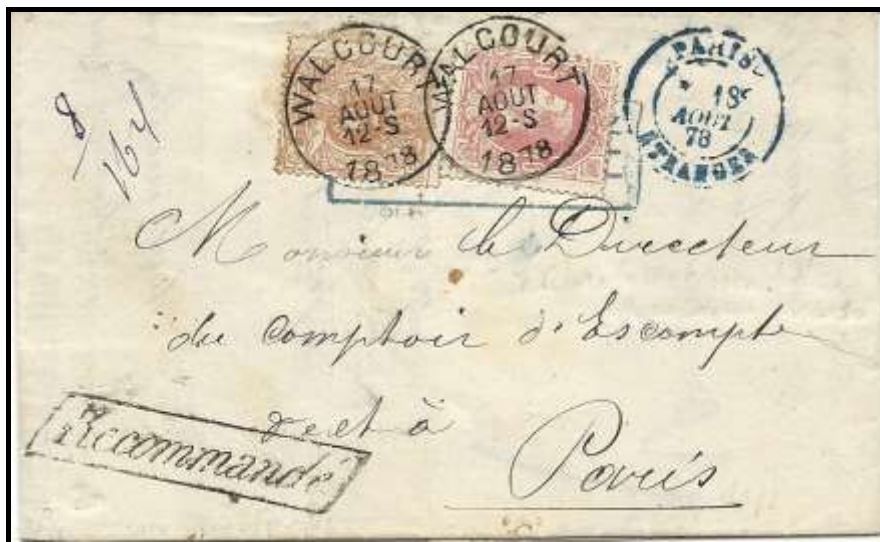 WALCOURT
17
AOUT
12-S
1878
WALCOURT
17
AOUT
12-S
1878
PARIS
18
AOUT
78
ETRANGER
8
164
Monsieur le Directeur
du Comptoir d'Escompte
de et à
Paris
Recommandé